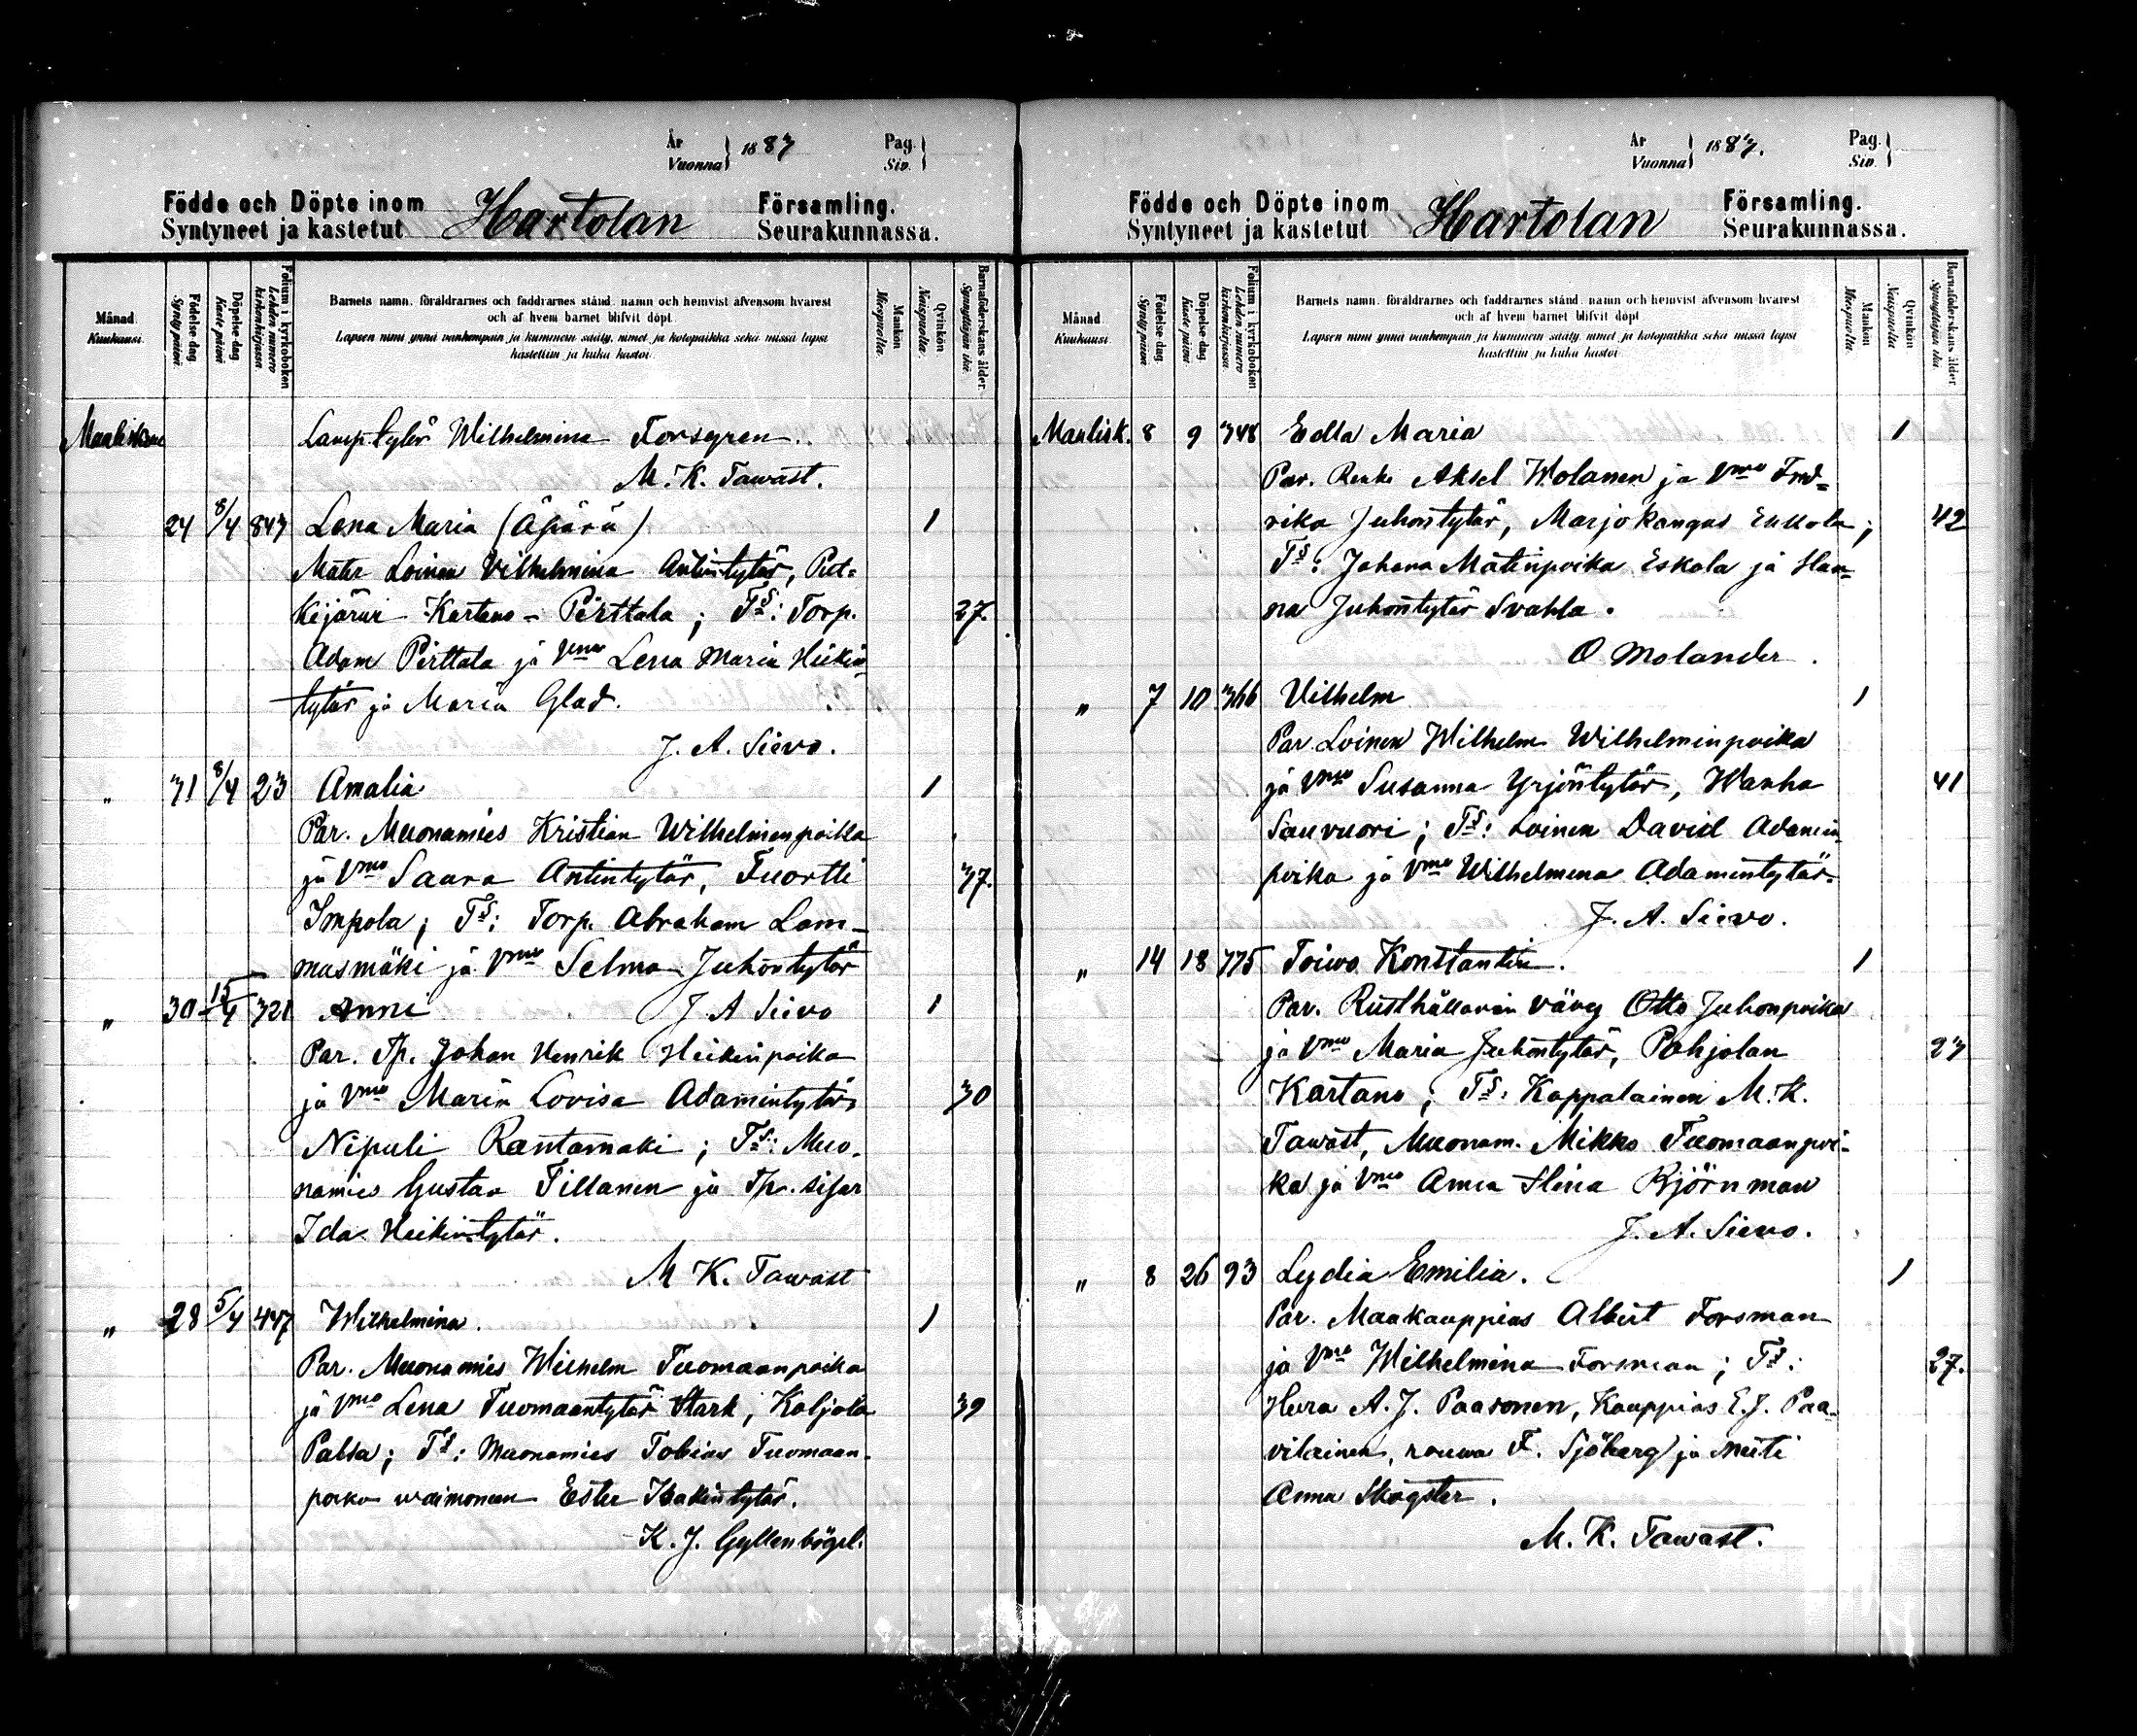 År
Vuonna } 1883
Pag.
Siv. }
Födde och Döpte inom Hartolan Församling.
Syntyneet ja kastetut Seurakunnassa.
Månad
Kuukausi.
Födelse dag
Synty päivä.
Döpelse dag
Kaste päivä
Folium i kyrkoboken
Lehden numero kirkonkirjassa.
Barnets namn, föräldrarnes och faddrarnes stånd, namn och hemvist äfvensom hvarest
och af hvem barnet blifvit döpt.
Lapsen nimi ynnä vanhempain ja kummein sääty, nimet ja kotopaikka sekä missä lapsi
kastettiin ja kuka kastoi.
Mankön
Miespuolia.
Qvinkön
Naispuolia.
Barnaföderskans ålder.
Synnyttäjän ikä.
Maalisk. Lamp.tytär Wilhelmina Forsgren.
M. K. Tawast.
24 8/4 843 Lena Maria (Äpärä) 1
Mater Loinen Vilhelmina Antintytär, Put=
kijärvi Kartano - Pirttala; Ts: Torp. 27.
Adam Pirttala ja Vmo Lena Maria Heikin
tytär ja Maria Glad.
J. A. Sievo.
" 31 8/4 23 Amalia 1
Par. Muonamies Kristian Wilhelminpoika
ja Vmo Saara Antintytär, Tuortti 37.
Impola; Ts: Torp. Abraham Lam-
masmäki ja Vmo Selma Juhontytär
" 30 15/4 321 Anni J A Sievo 1
Par. Tp. Johan Henrik Heikinpoika
ja Vmo Maria Lovisa Adamintytär, 30
Nipuli Rantamaki; Ts: Muo.
namies Gustaa Tillanen ja Tp. sisar
Ida Heikintytär.
M K. Tawast
" 28 5/4 447 Wilhelmina. 1
Par. Muonamies Wilhelm Tuomaanpoika
ja Vmo Lena Tuomaantytär Stark, Kaljola 39
Palsa; Ts: Muonamies Tobias Tuomaan-
poika waimoneen Ester Isakintytär.
K. J. Gyllenbögel.
År
Vuonna } 1883.
Pag.
Siv. }
Födde och Döpte inom Hartolan Församling.
Syntyneet ja kastetut Seurakunnassa.
Månad
Kuukausi.
Födelse dag
Synty päivä
Döpelse dag
Kaste päivä
Folium i kyrkoboken
Lehden numero kirkonkirjassa.
Barnets namn, föräldrarnes och faddrarnes stånd, namn och hemvist äfvensom hvarest
och af hvem barnet blifvit döpt
Lapsen nimi ynnä vanhempain ja kummein sääty, nimet ja kotopaikka sekä missä lapsi
kastettiin ja kuka kastoi
Mankön
Miespuolia.
Qvinkön
Naispuolia
Barnaföderskans ålder
Synnyttäjän ikä.
Maalisk. 8 9 348 Edla Maria 1
Par. Renki Aksel Wolanen ja Vmo Fred=
rika Juhontytär, Marjokangas Eukola; 42
Ts: Johana Matinpoika Eskola ja Han=
na Juhontytär Svahla.
O Molander.
" 7 10 366 Vilhelm 1
Par. Loinen Wilhelm Wilhelminpoika
ja Vmo Susanna Yrjöntytär, Wanha 41
Sauvuori; Ts: Loinen David Adamin
poika ja Vmo Wilhelmina Adamintytär.
J. A. Sievo.
" 14 18 775 Toiwo Konstantin. 1
Par. Rusthållarin vävy Otto Juhonpoika
ja Vmo Maria Juhontytär, Pohjolan 23
Kartano; Ts: Kappalainen M. K.
Tawast, Muonam. Mikko Tuomaanpoi-
ka ja Vmo Anna Stina Björnman
J. A. Sievo.
" 8 26 93 Lydia Emilia. 1
Par. Maakauppias Albert Forsman
ja Vmo Wilhelmina Forsman; Ts: 27.
Herra A. J. Paasonen, Kauppias E. J. Paa-
vilainen, rouwa F. Sjöberg ja Neiti
Anna Skogster.
M. K. Tawast.